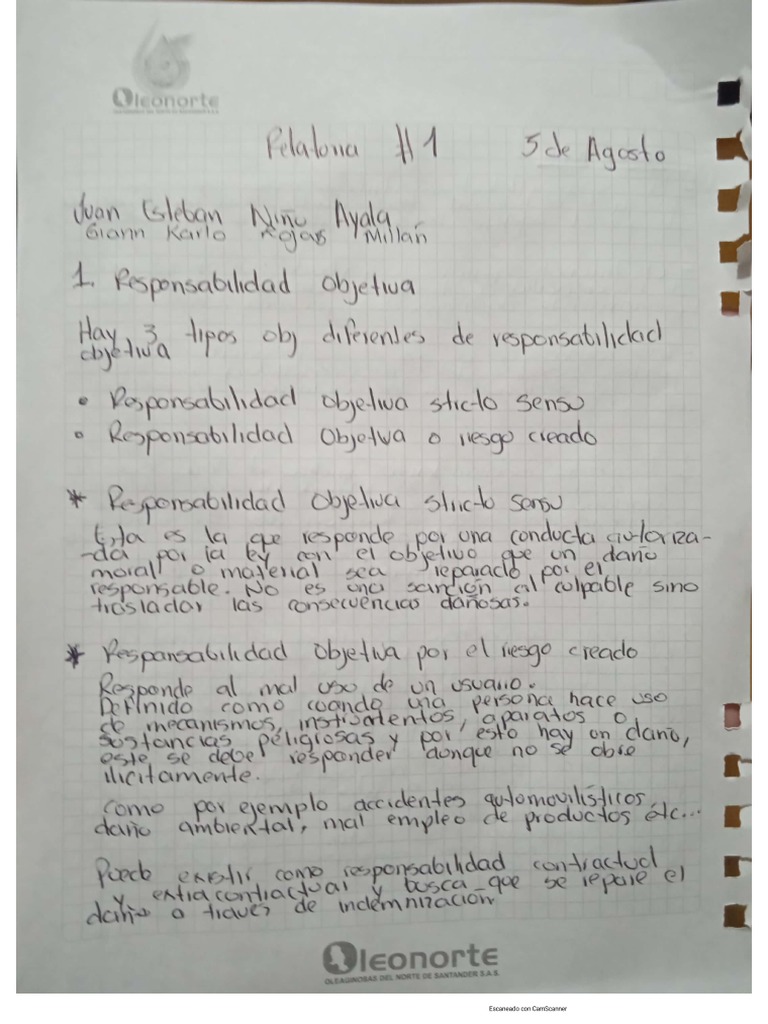 Oleonorte
Pelatona #1 5 de Agosto
Juan Esteban Niño Ayala
Giann Karlo Rojas Millan
1. Responsabilidad Objetiva
Hay 3 tipos obj diferentes de responsabilidad
objetiva
• Responsabilidad objetiva stricto sensu
• Responsabilidad Objetiva o riesgo creado
* Responsabilidad Objetiva stricto sensu
Esta es la que responde por una conducta autoriza-
-da por la ley con el objetivo que un daño
moral o material sea reparado por el
responsable. No es una sanción al culpable sino
trasladar las consecuencias dañosas.
* Responsabilidad Objetiva por el riesgo creado
Responde al mal uso de un usuario.
Definido como cuando una persona hace uso
de mecanismos, instrumentos, aparatos o
sustancias peligrosas y por esto hay un daño,
este se debe responder aunque no se obre
ilicitamente.
Como por ejemplo accidentes automovilísticos,
daño ambiental, mal empleo de productos etc...
Puede existir como responsabilidad contractual
y extracontractual y busca que se repare el
daño a traves de indemnización
Oleonorte
OLEAGINOSAS DEL NORTE DE SANTANDER S.A.S.
Escaneado con CamScanner